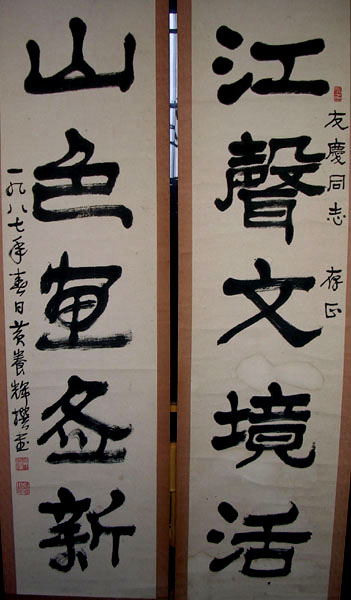 友慶同志 存正
江聲文境活
山色新
一九八七年春日黄養輝撰書